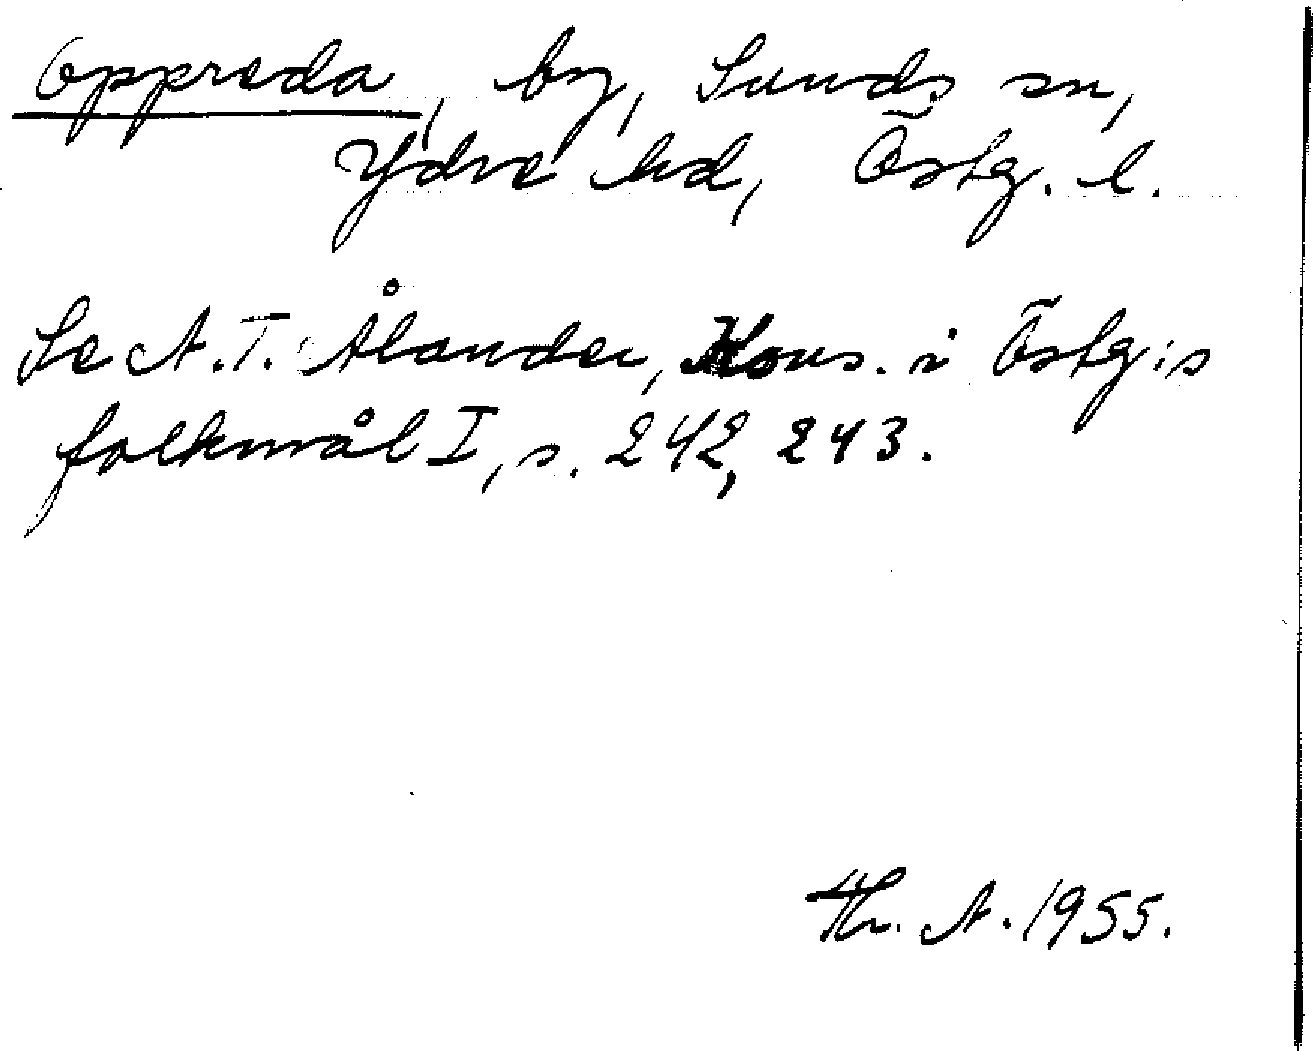 Oppreda, by, Sunds sn,
Ydre hd, Östg. l.
Se A.T. Ålander, Kons. i Östg:s
folkmål I, s. 242, 243.
Th. A. 1955.